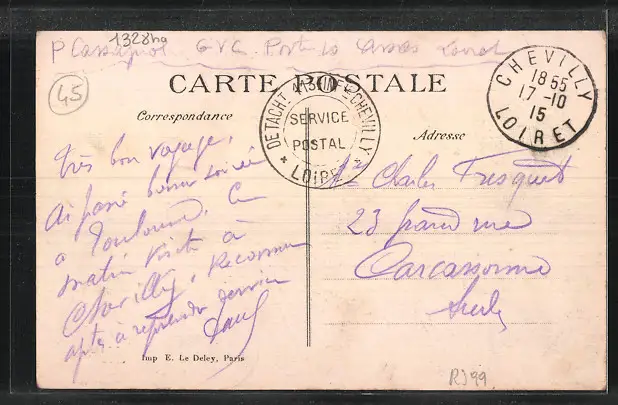 1328ha
P Cassignol G V C. Poste 10 Cassas Loiret
45
CARTE POSTALE
Correspondance
Adresse
DETACHT 113 INFIE CHEVILLY
SERVICE
POSTAL
* LOIRET *
CHEVILLY
18 55
17 -10
15
LOIRET
très bon voyage,
ai passé bonne soirée
a Toulouse. Ce
matin visite à
Chevilly, 
après
Paul
Mr Charles Fresquet
23 grand rue
Carcassonne
Aude
Imp E. Le Deley, Paris
R)99